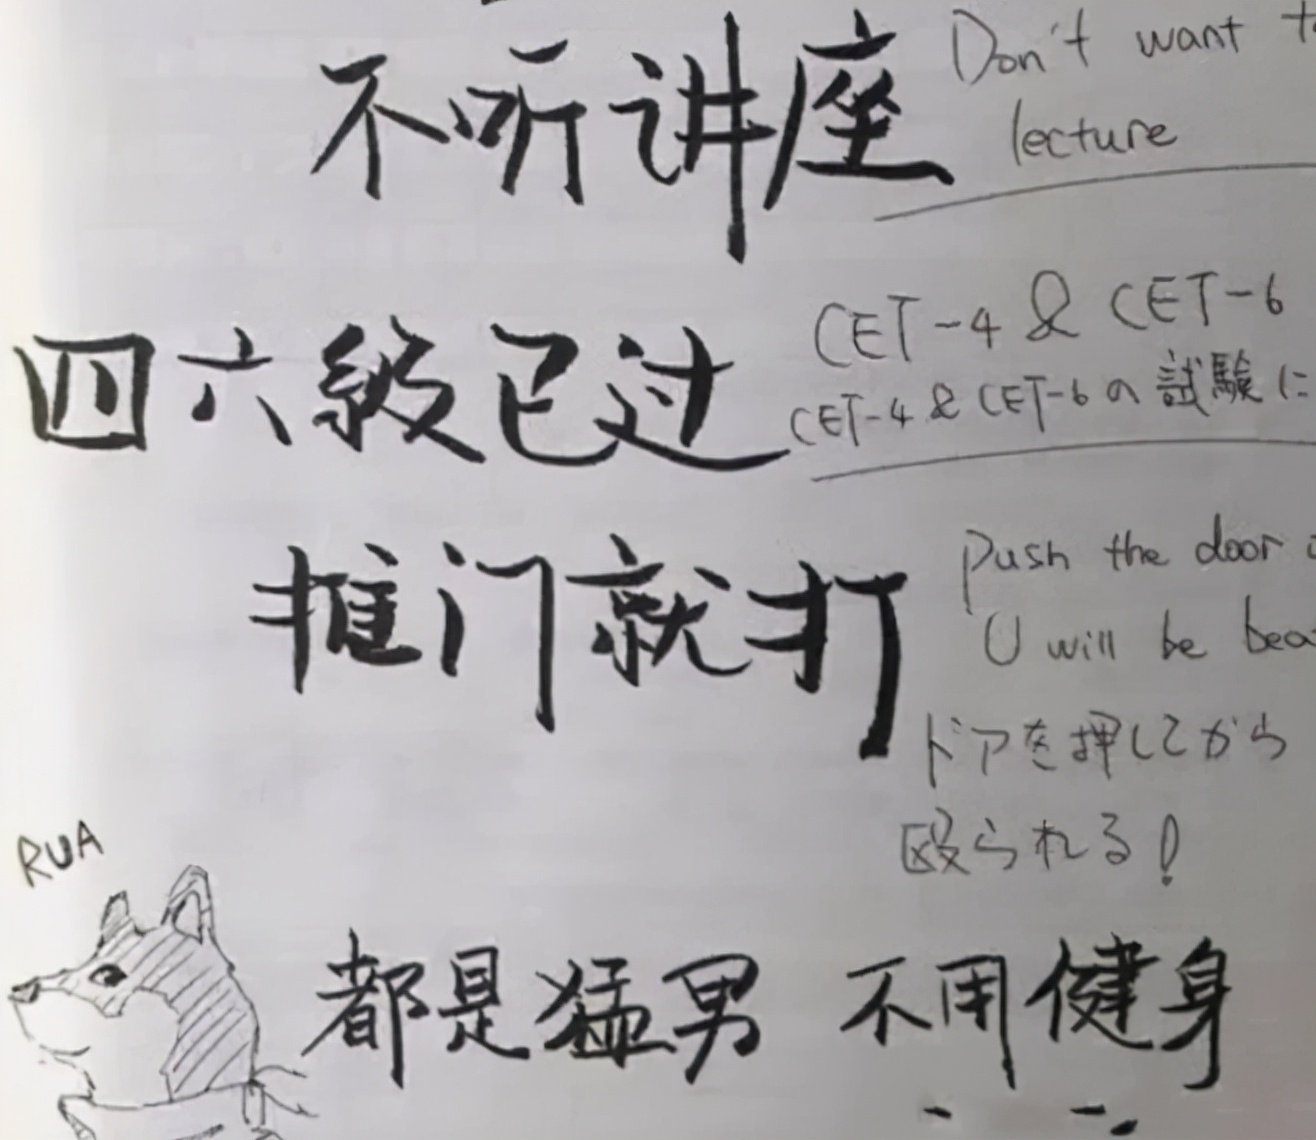 不听讲座
Don't want
lecture
四六级已过
CET-4 & CET-6
CET-4 & CET-6の試験に
推门就打
Push the door
U will be
ドアを押してから
殴られる!
RUA
都是猛男 不用健身